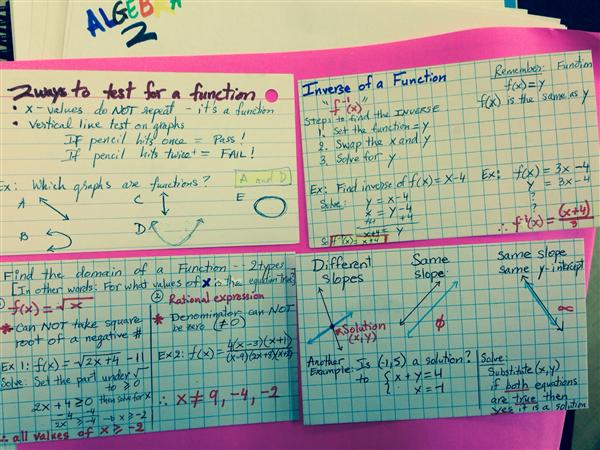 ALGEBRA
2
2 ways to test for a function
• x-values do NOT repeat - it's a function
• Vertical line test on graphs
If pencil hits once = Pass!
If pencil hits twice+ = FAIL!
Ex: Which graphs are functions? A and D
A
C
E
B
D
Inverse of a Function
"f⁻¹(x)"
Remember: Function
f(x) = y
f(x) is the same as y
Steps to find the INVERSE
1. Set the function = y
2. Swap the x and y
3. Solve for y
Ex: Find inverse of f(x) = x-4
Solve: y = x-4
x = y-4
+4 +4
x+4 = y
So f⁻¹(x) = x+4
Ex: f(x) = 3x-4
y = 3x-4
?
?
?
∴ f⁻¹(x) = (x+4)/3
Find the domain of a Function - 2 types
[In other words: For what values of x is the equation true]
① f(x) = √x
* Can NOT take square
root of a negative #
Ex 1: f(x) = √2x+4 - 11
Solve: Set the part under √
to ≥ 0 then solve for x
2x+4 ≥ 0
-4 -4
2x ≥ -4 → x ≥ -2
∴ all values of x ≥ -2
② Rational expression
* Denominator can NOT
be zero (≠0)
Ex2: f(x) = 4(x-3)(x+1)
∴ x ≠ 9, -4, -2
Different
slopes
* Solution
(x,y)
Same
slope
ϕ
Same slope
same y-intercept
∝
Another
Example: Is (-1,5) a solution?
to { x + y = 4
x = -1
Solve:
Substitute (x,y)
if both equations
are true then
yes it is a solution